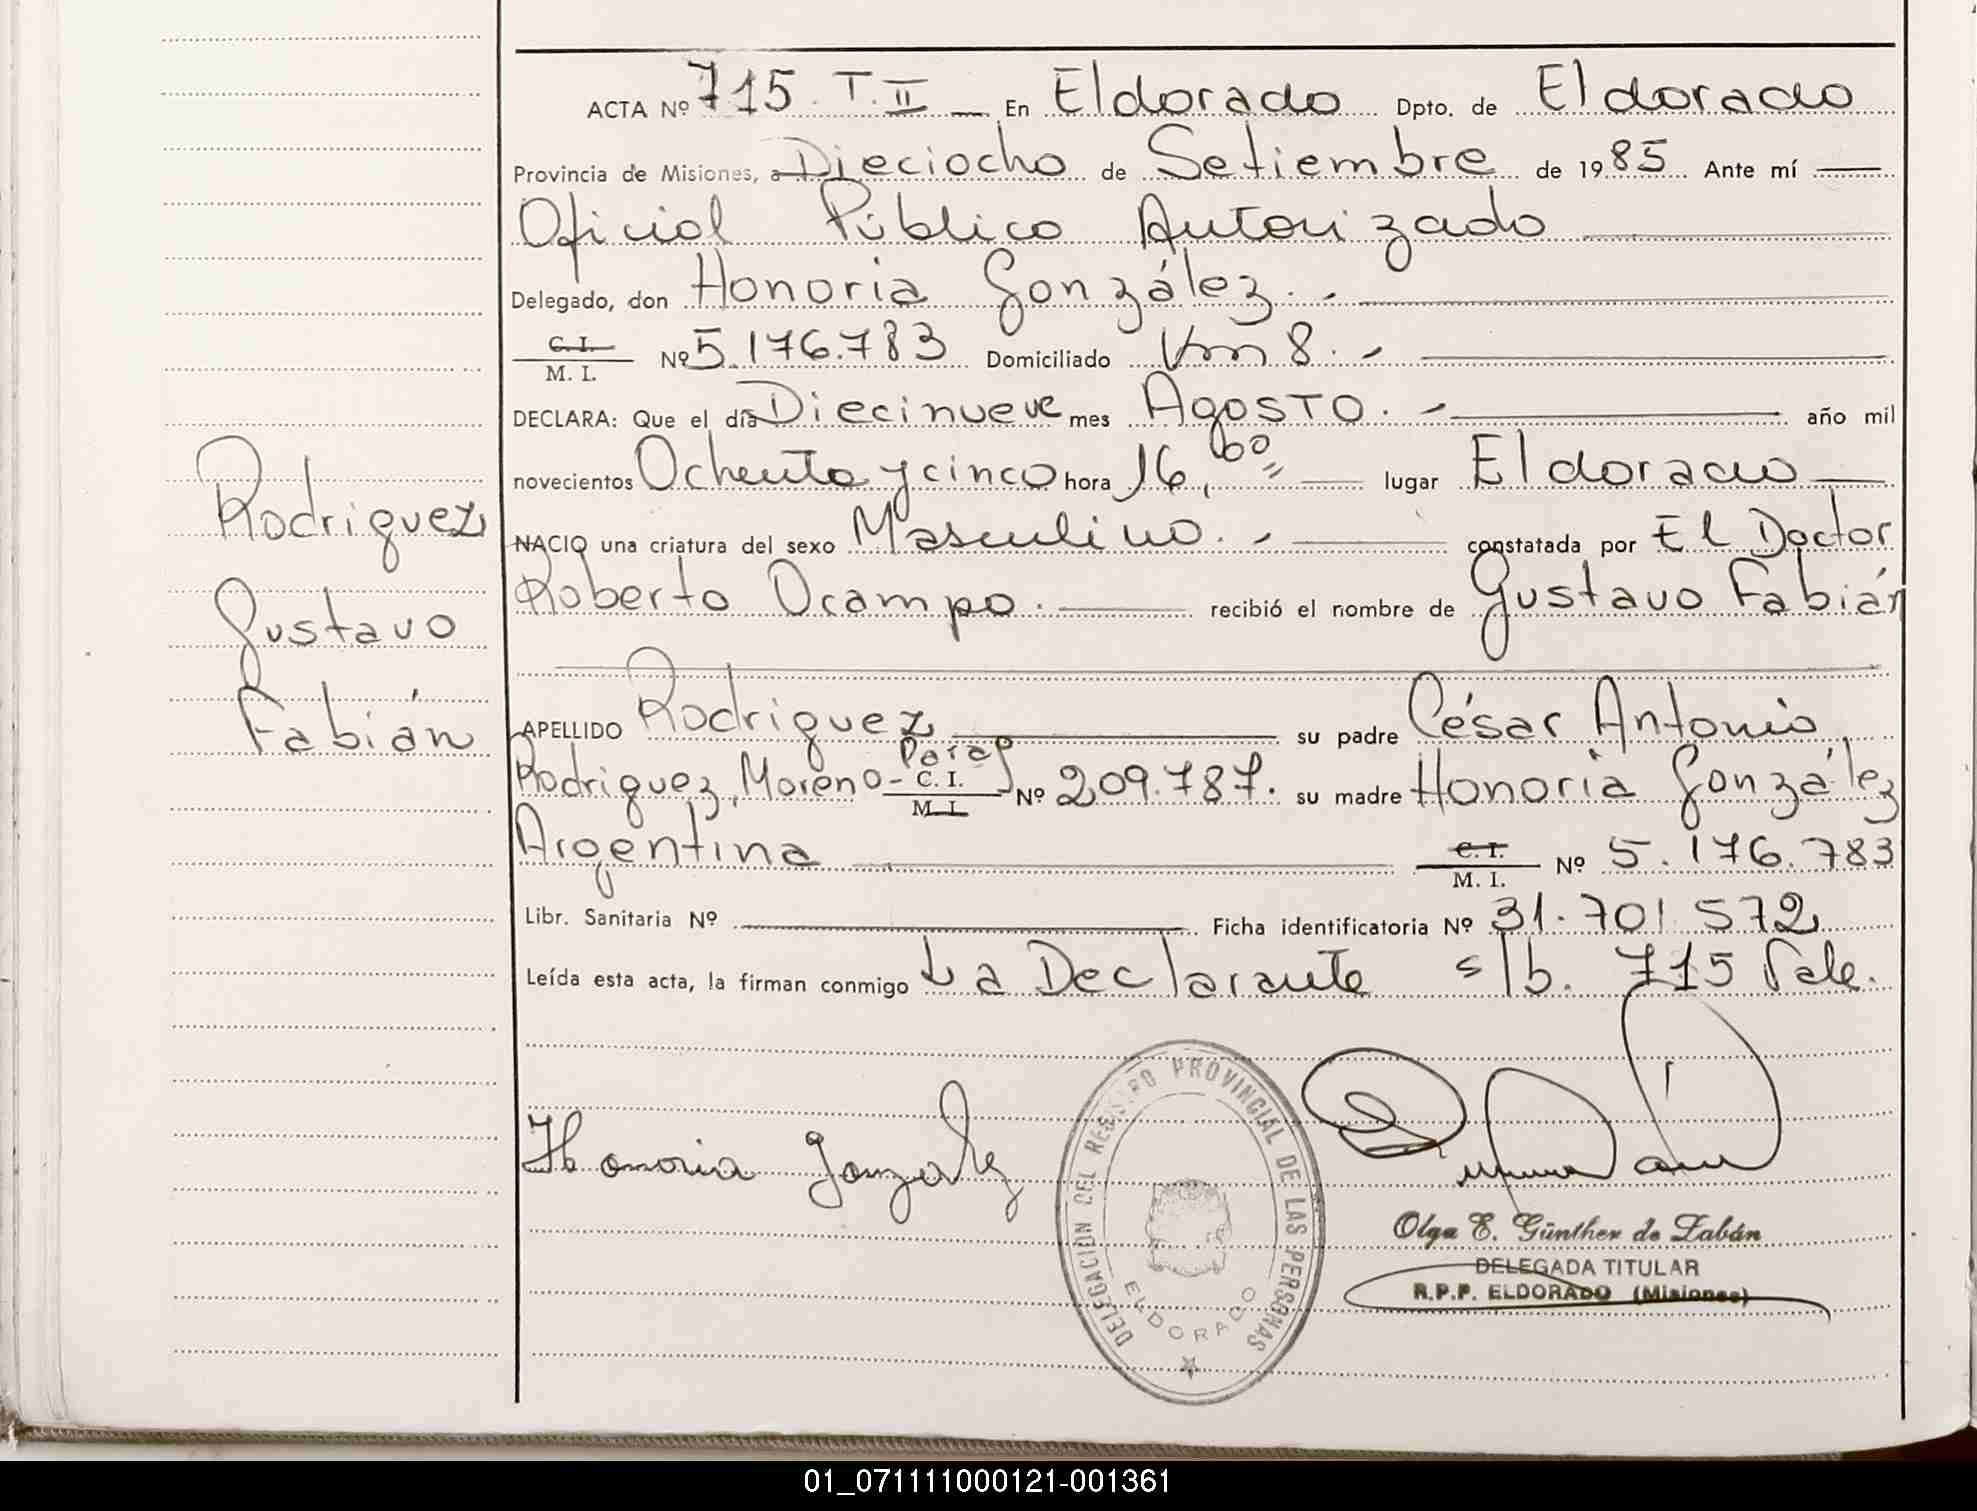 ACTA Nº 715. T. II — En Eldorado Dpto. de Eldorado
Provincia de Misiones, a Dieciocho de Setiembre de 1985 Ante mí
Oficial Público Autorizado
Delegado, don Honoria González.
C. I.
M. I. Nº 5.176.783 Domiciliado Km 8.
DECLARA: Que el día Diecinueve mes Agosto. año mil
novecientos Ochenta y cinco hora 16,00 lugar Eldorado
NACIO una criatura del sexo Masculino. constatada por El Doctor
Roberto Ocampo. recibió el nombre de Gustavo Fabián
APELLIDO Rodriguez su padre César Antonio
Rodriguez, Moreno - C. I. Parag
M. I. Nº 209.787. su madre Honoria González
Argentina C. I.
M. I. Nº 5.176.783
Libr. Sanitaria Nº Ficha identificatoria Nº 31.701.572
Leída esta acta, la firman conmigo La Declarante s/b. 715 Vale.
Rodriguez
Gustavo
Fabián
Honoria Gonzalez
DELEGACION DEL REGISTRO PROVINCIAL DE LAS PERSONAS
ELDORADO
Olga E. Günther de Zabán
DELEGADA TITULAR
R.P.P. ELDORADO (Misiones)
01_071111000121-001361